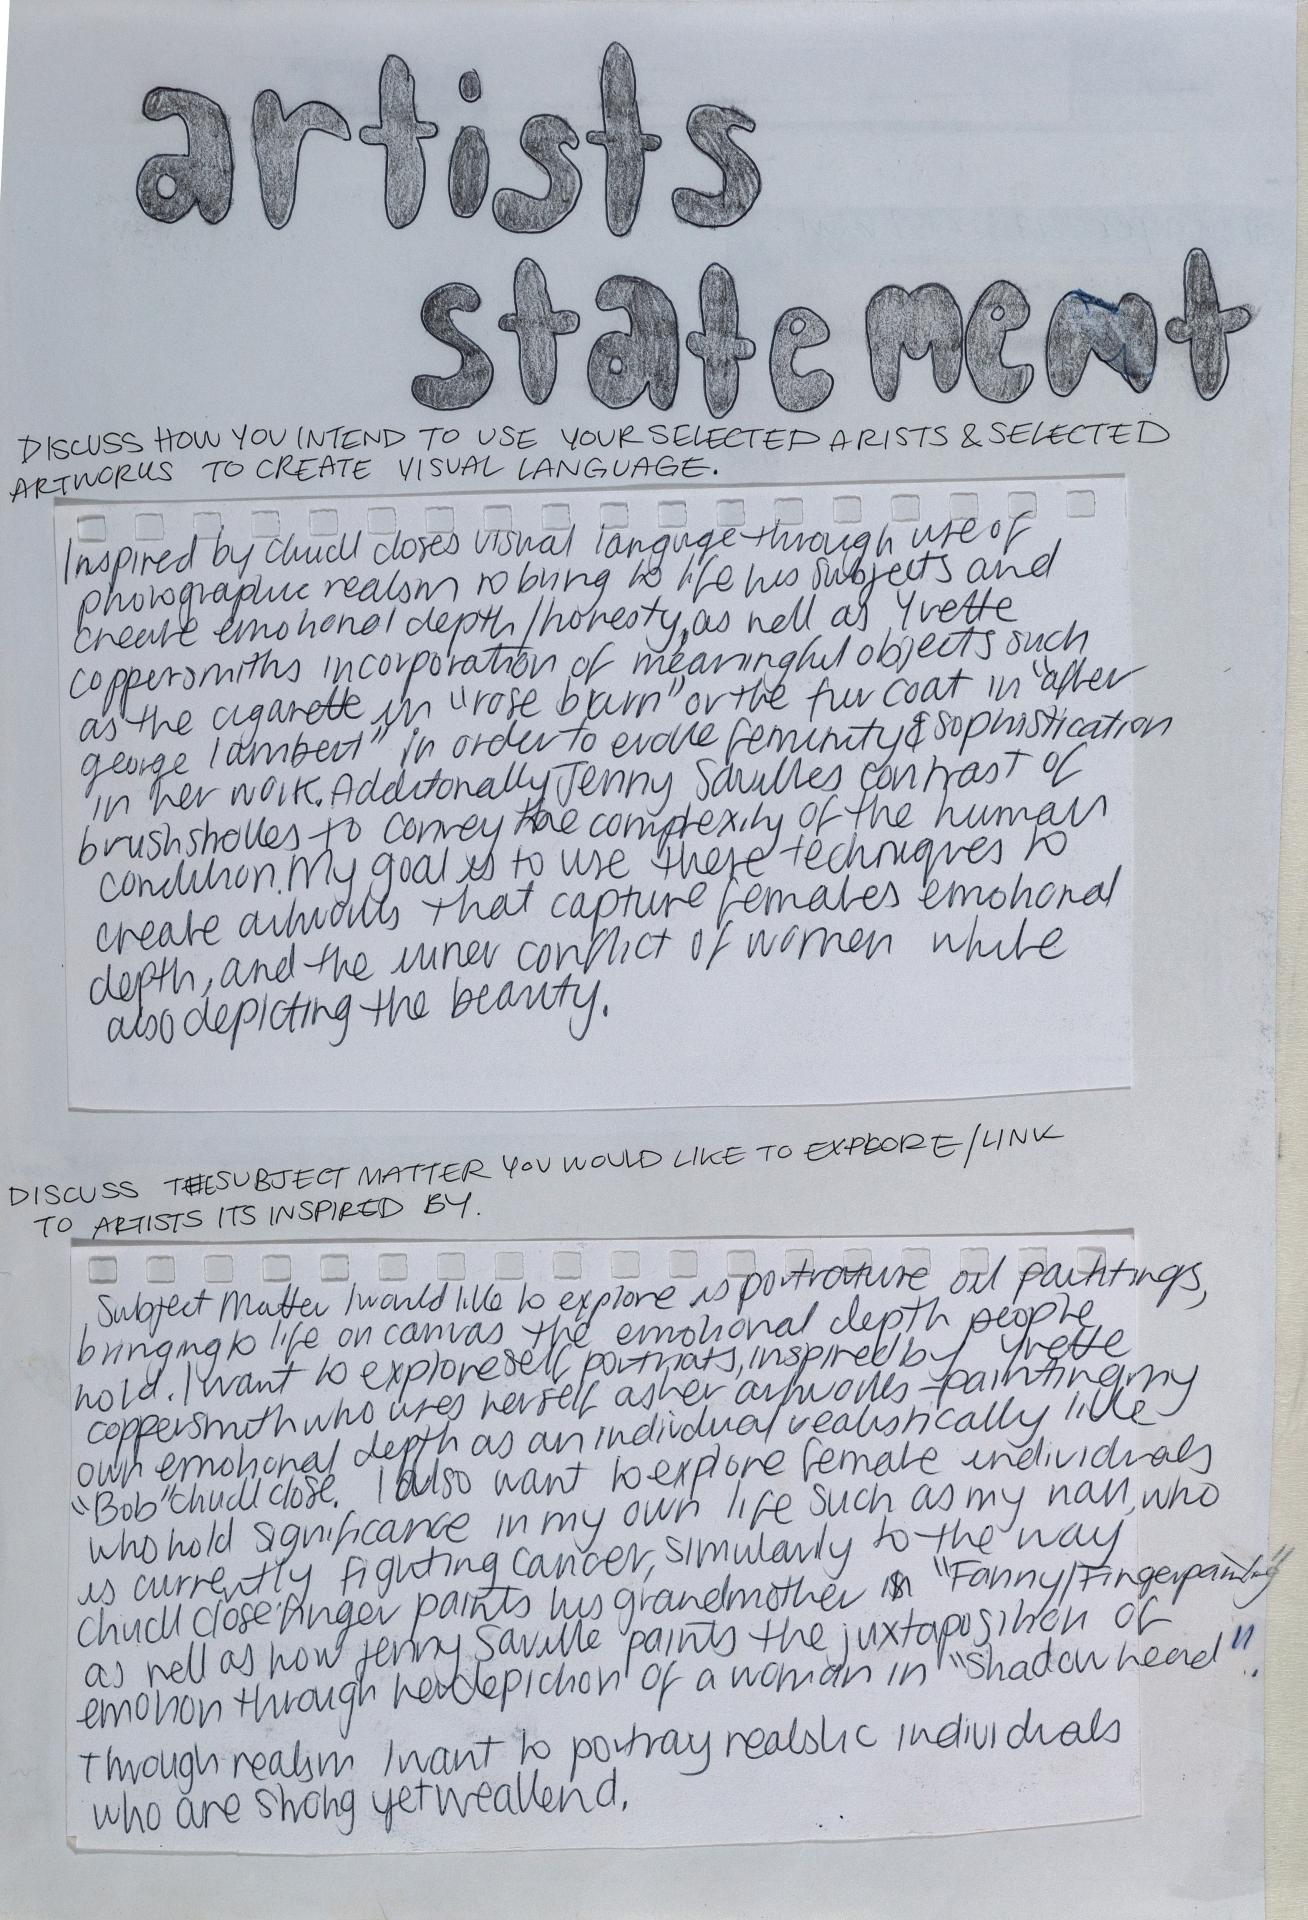 artists
statement
DISCUSS HOW YOU INTEND TO USE YOUR SELECTED ARISTS & SELECTED
ARTWORKS TO CREATE VISUAL LANGUAGE.
Inspired by chuck closes visual languge through use of
photographic realism to bring to life his subjects and
create emotional depth/honesty, as well as Yvette
coppersmiths incorporation of meaningful objects such
as the cigarette in "rose burn" or the fur coat in "after
george lambert" in order to evoke feminity & sophistication
in her work. Additonally Jenny Savilles contrast of
brushstrokes to convey the complexity of the human
condition. My goal is to use these techniques to
create artworks that capture females emotional
depth, and the inner conflict of women while
also depicting the beauty.
DISCUSS THE SUBJECT MATTER YOU WOULD LIKE TO EXPLORE/LINK
TO ARTISTS ITS INSPIRED BY.
Subject Matter I would like to explore is portrature oil paintings,
bringing to life on canvas the emotional depth people
hold. I want to explore self portriats, inspired by Yvette
coppersmith who uses herself as her artworks - painting my
own emotional depth as an individual realistically like
"Bob" chuck close. I also want to explore female individuals
who hold significance in my own life such as my nan, who
is currently fighting cancer, simularly to the way
chuck close finger paints his grandmother in "Fanny/Fingerpainting"
as well as how jenny Saville paints the juxtaposition of
emotion through her depiction of a woman in "Shadow head".
Through realism I want to portray realistic individuals
who are strong yet weakend.